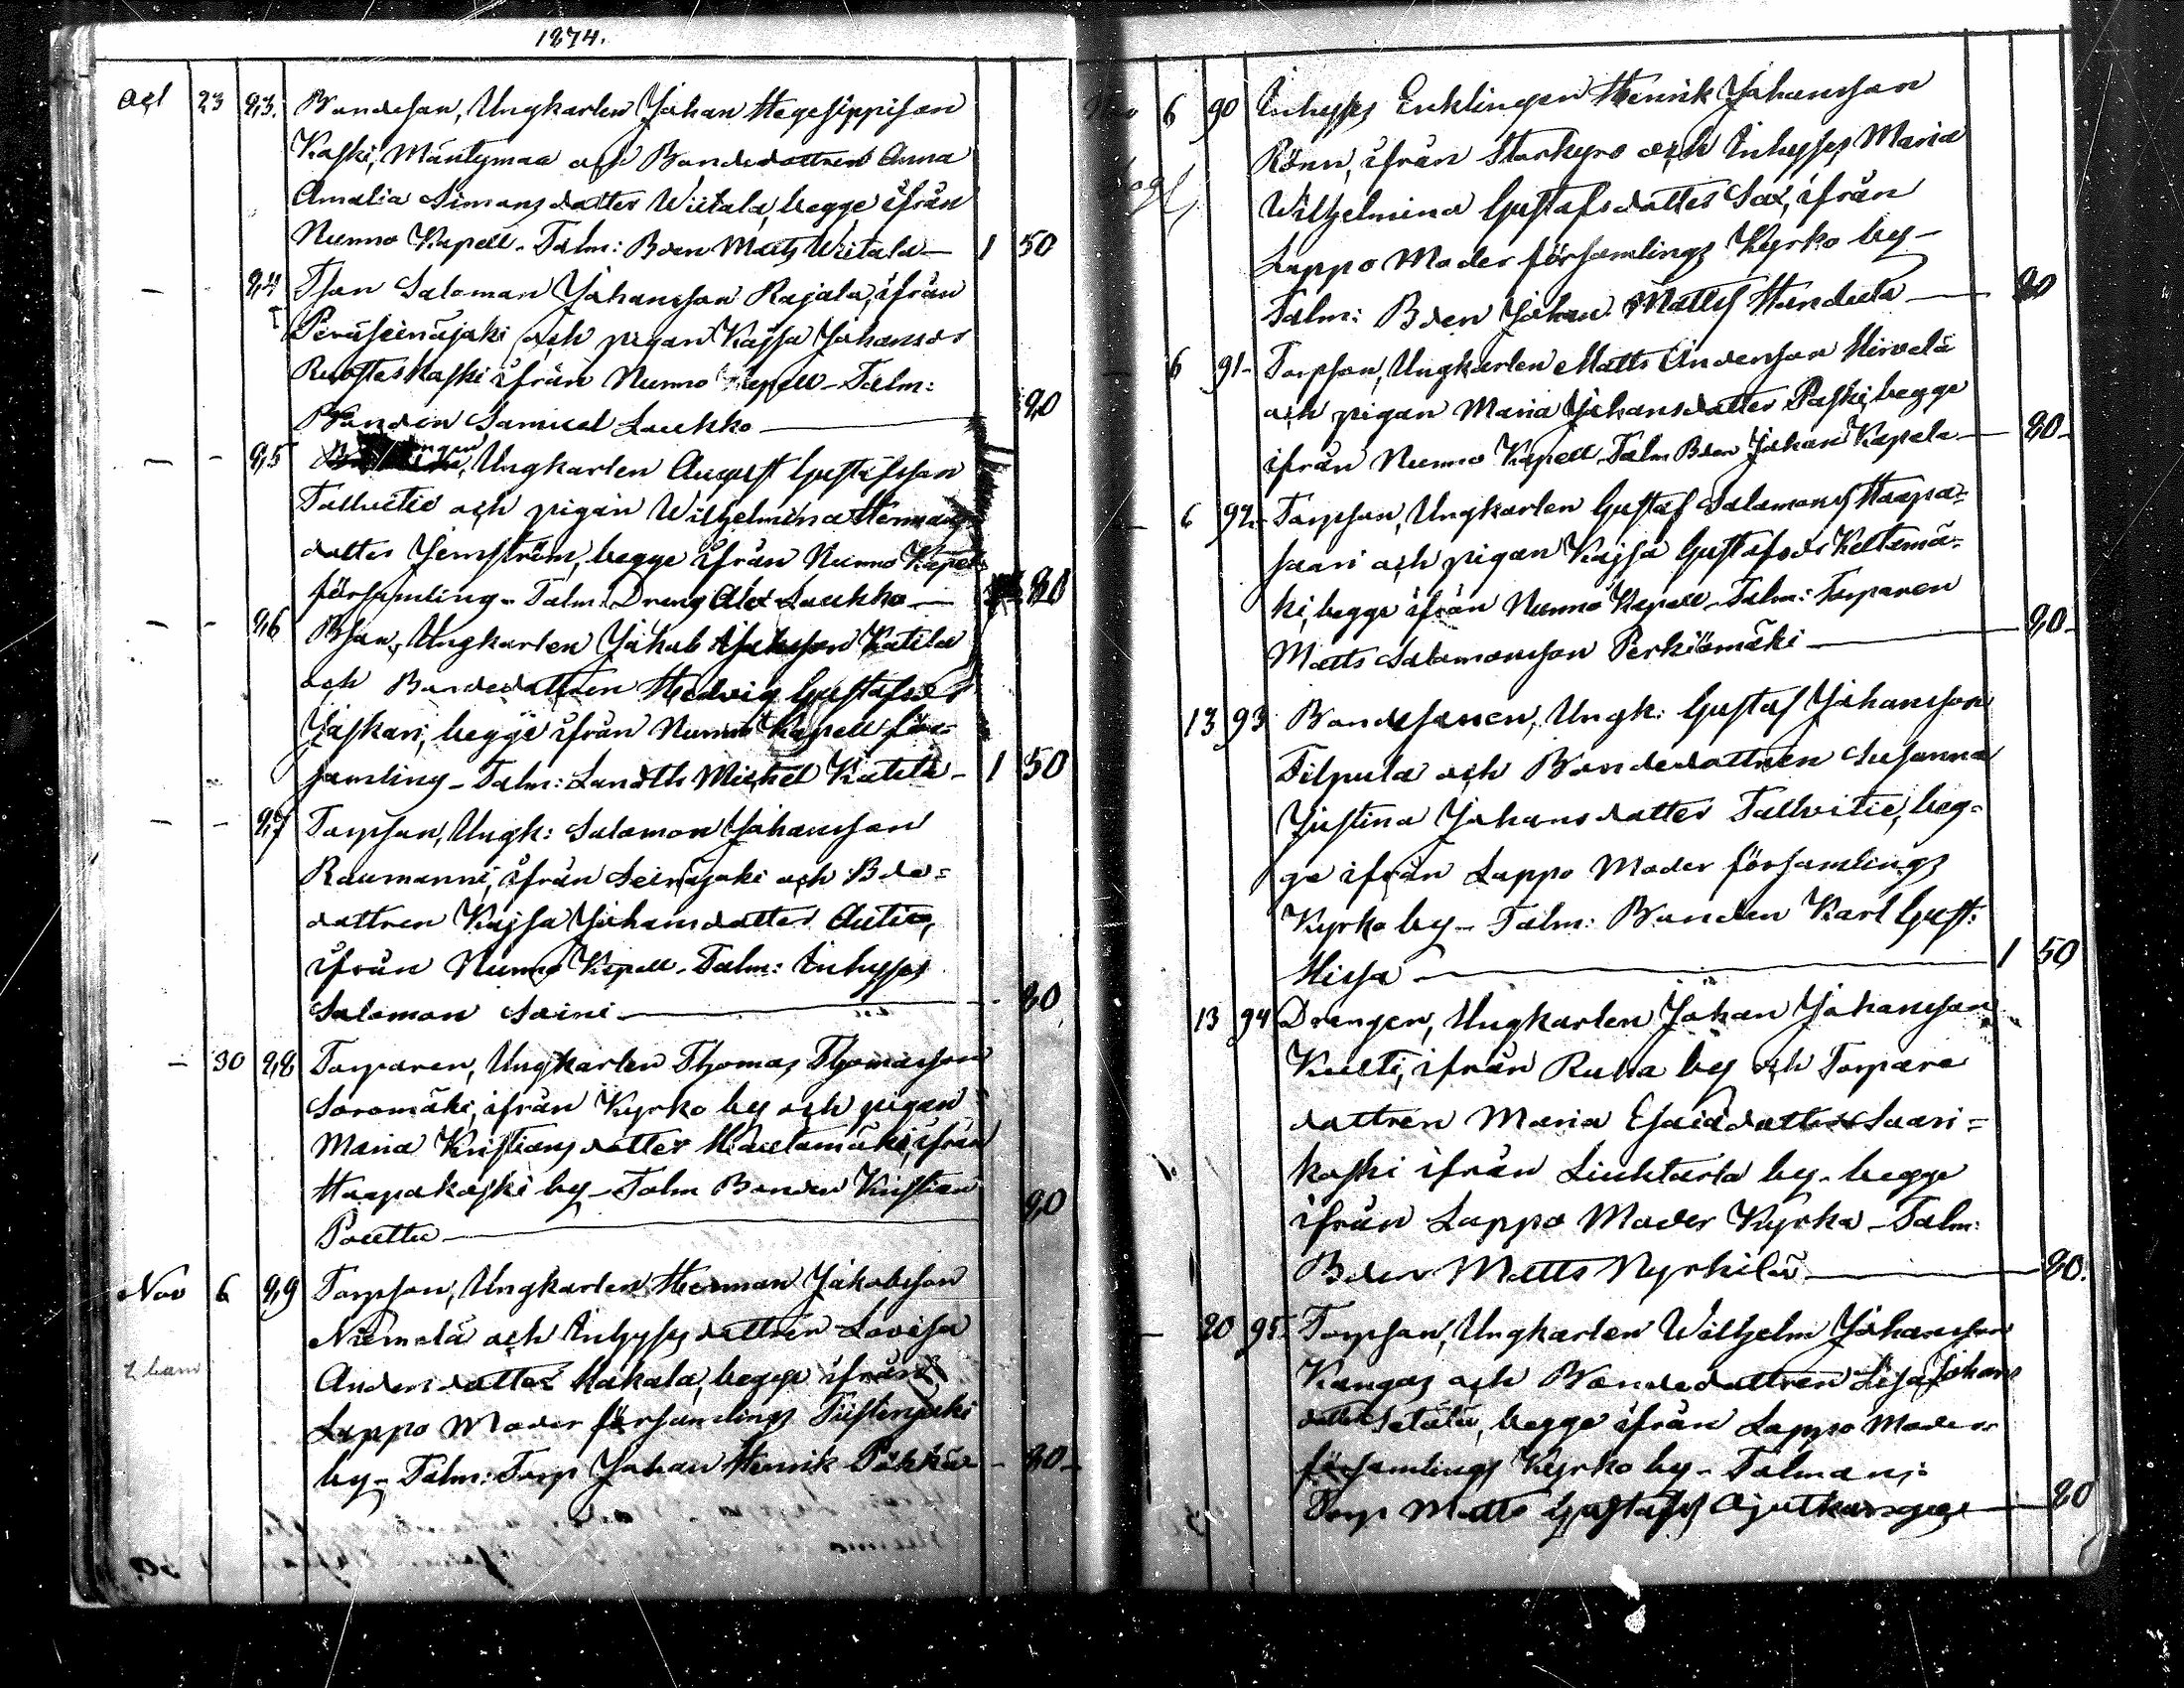 1874.
Oct 23 83. Bondeson, Ungkarlen Johan Hegesippison
Koski, Mäntymaa och Bondedottren Anna
Amalia Simonsdotter Wiitala, begge ifrån
Nurmo Kapell. Talm: Bden Matts Wiitala — 1 50
— 84 Tson Salomon Johansson Rajala, ifrån
Peräseinäjoki och pigan Kajsa Johansdr
Ruostekoski ifrån Nurmo Kapell – Talm:
Bonden Samuel Laukko — 80
— - 85 Ungkarlen August Gustafsson
Tallvitie och pigan Wilhelmina Hermans
dotter Jernström, begge ifrån Nurmo Kapell
församling – Talm: Dreng Alex Laukko — 80
— - 86 Bson, Ungkarlen Jakob Jakobsson Katila
och Bondedottren Hedvig Gustafsdr
Jaskari, begge ifrån Nurmo Kapell för=
samling – Talm: Landtb Mickel Katila – 1 50
— - 87 Torpson, Ungk: Salomon Johansson
Raumanni, ifrån Seinäjoki och Bde=
dottren Kajsa Johansdotter Antila,
ifrån Nurmo Kapell. Talm: Inhyses
Salomon Saini — 80
— 30 88 Torparen, Ungkarlen Thomas Thomasson
Soromäki, ifrån Kyrko by och pigan
Maria Kristiansdotter Hautamäki, ifrån
Haapakoski by – Talm Bonden Kristian
Pouttu — 80
Nov 6 89 Torpson, Ungkarlen Herman Jakobsson
Niemelä och Inhysesdottren Lovisa
Andersdotter Kakala, begge ifrån
Lappo Moder församlings Tiistenjoki
by – Talm: Torp Johan Henrik Pökkä – 80 –
Nov 6 90 Inhyses Enklingen Henrik Johansson
Rönn, ifrån Storkyro och Inhyses Maria
Wilhelmina Gustafsdotter Sax, ifrån
Lappo Moder församlings Kyrko by –
Talm: Bden Johan Matts — 80
— 6 91- Torpson, Ungkarlen Matts Andersson Hirvelä
och pigan Maria Johansdotter Paski, begge
ifrån Nurmo Kapell. Talm Bden Johan Kapela — 80 –
— 6 92- Torpson, Ungkarlen Gustaf Salomons Haapa=
saari och pigan Kajsa Gustafsdr Keltamä=
ki, begge ifrån Nurmo Kapell – Talm: Torparen
Matts Salomonsson Perkiömäki — 80 –
13 93 Bondesonen, Ungk: Gustaf Johansson
Filpula och Bondedottren Susanna
Justina Johansdotter Tallvitie, beg=
ge ifrån Lappo Moder församlings
Kyrko by – Talm: Bonden Karl Gust:
Hissa — 1 50
13 94 Drengen, Ungkarlen Johan Johansson
Kultti, ifrån Ruha by och Torpare
dottren Maria Esaiadotter Saari=
koski ifrån Liuhtari by – begge
ifrån Lappo Moder Kyrka – Talm:
Bden Matts Nyrhilä — 80.
— 20 95. Torpson, Ungkarlen Wilhelm Johansson
Kangas och Bondedottren Lisa Johans
dotter Setälä, begge ifrån Lappo Moder
församlings Kyrko by – Talman:
Torp Matts Gustafs Ojutkangas — 80